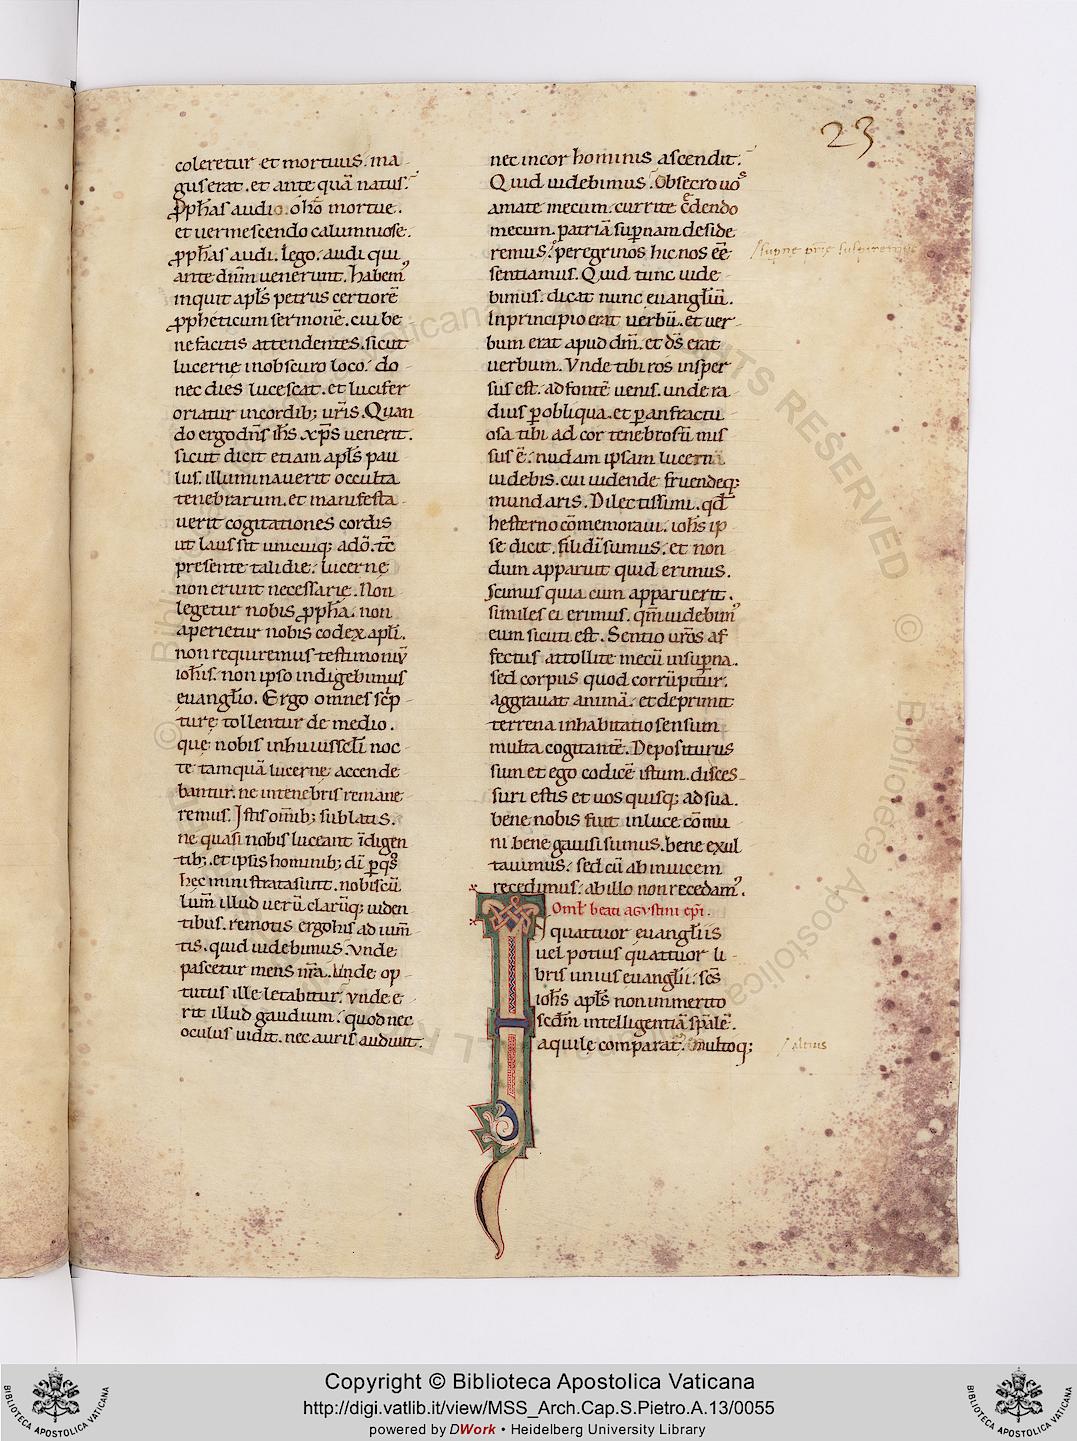 23
coleretur et mortuus. ma
gus erat. et ante quā natus.
ꝓph̄as audio. o hō mortue.
et vermescendo calumniose.
ꝓph̄as audi. lego. audi qui
ante dn̄m uenerunt. habem᾽
inquit apl̄s petrus certiorē
ꝓpheticum sermonē. cui be
ne facitis attendentes. sicut
lucernę in obscuro loco. do
nec dies lucescat. et lucifer
oriatur in cordib; ur̄is. Quan
do ergo dn̄s ih̄s xp̄s uenerit.
sicut dicit etiam apl̄s pau
lus. illuminauerit occulta
tenebrarum. et manifesta
uerit cogitationes cordis
ut laus sit unicuiq; a dō. tc̄
presente tali die. lucernę
non erunt necessarie. Non
legetur nobis ꝓph̄a. non
aperietur nobis codex apl̄i.
non requiremus testimoniū
ioh̄is. non ipso indigebimus
euangl̄io. Ergo omnes sc̄rip
turę tollentur de medio.
que nobis in huius sc̄li noc
te tamquā lucernę accende
bantur. ne in tenebris remane
remus. Istis om̄ib; sublatis.
ne quasi nobis luceant īdigen
tib;. et ipsis hominib; dī ꝑ qͦs
hęc ministrata sunt. nobiscū
lum̄ illud uerū clarūq; uiden
tibus. remotis ergo his adium̄
tis. quid uidebimus. Vnde
pascetur mens nr̄a. Unde op
tutus ille letabitur. vnde e
rit illud gaudium. quod nec
oculus uidit. nec auris audiuit.
nec in cor hominis ascendit.
Quid uidebimus. Obsecro uoˢ
amate mecum. currite c̄dendo
mecum. patriā suꝑnam deside
remus. peregrinos hic nos eē
sentiamus. Quid tunc uide
bimus. dicat nunc euangl̄iū.
In principio erat verbū. et ver
bum erat apud dm̄. et ds̄ erat
uerbum. Vnde tibi ros insper
sus est. ad fontē uenis. unde ra
dius ꝑ obliqua. et ꝑ anfractu
osa tibi ad cor tenebrosū mis
sus ē. nudam ipsam lucernā
uidebis. cui uidende fruendeq;
mundaris. Dilectissimi. qd̄
hesterno cōmemoraui. ioh̄s ip
se dicit. filii dī sumus. et non
dum apparuit quid erimus.
Scimus quia cum apparuerit.
similes ei erimus. qm̄ uidebim᾽
eum sicuti est. Sentio ur̄os af
fectus attollite mecū in suꝑna.
sed corpus quod corrūpitur.
aggrauat animā. et deprimit
terrena inhabitatio sensum
multa cogitantē. Depositurus
sum et ego codicē istum. disces
suri estis et uos quisq; ad sua.
bene nobis fuit in luce cōmu
ni bene gauisi sumus. bene exul
tauimus. sed cū ab inuicem
recedimus. ab illo non recedam᾽.
Omł beati agustini ep̄i.
In quattuor euangliis
uel potius quattuor li
bris unius euangl̄ii. sc̄s
ioh̄s apl̄s non immerito
scd̄m intelligentiā sp̄alē.
aquile comparat᾽. multoq;
/ altius
© Biblioteca Apostolica Vaticana
ALL RIGHTS RESERVED
BIBLIOTECA APOSTOLICA VATICANA
Copyright © Biblioteca Apostolica Vaticana
http://digi.vatlib.it/view/MSS_Arch.Cap.S.Pietro.A.13/0055
powered by DWork • Heidelberg University Library
BIBLIOTECA APOSTOLICA VATICANA